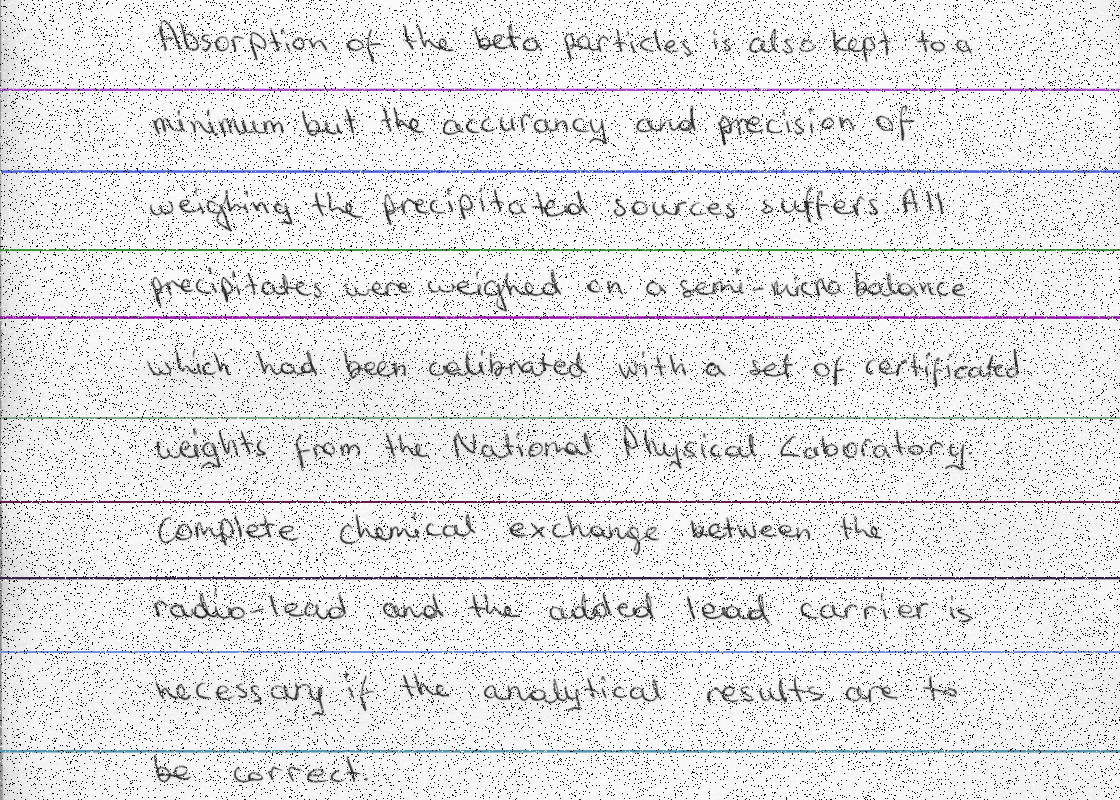 Absorption of the beta particles is also kept to a
minimum but the accurancy and precision of
weighing the precipitated sources suffers All
precipitates were weighed on a semi-micro balance
which had been calibrated with a set of certificated
weights from the National Physical Laboratory.
Complete chemical exchange between the
radio-lead and the added lead carrier is
necessary if the analytical results are to
be correct.